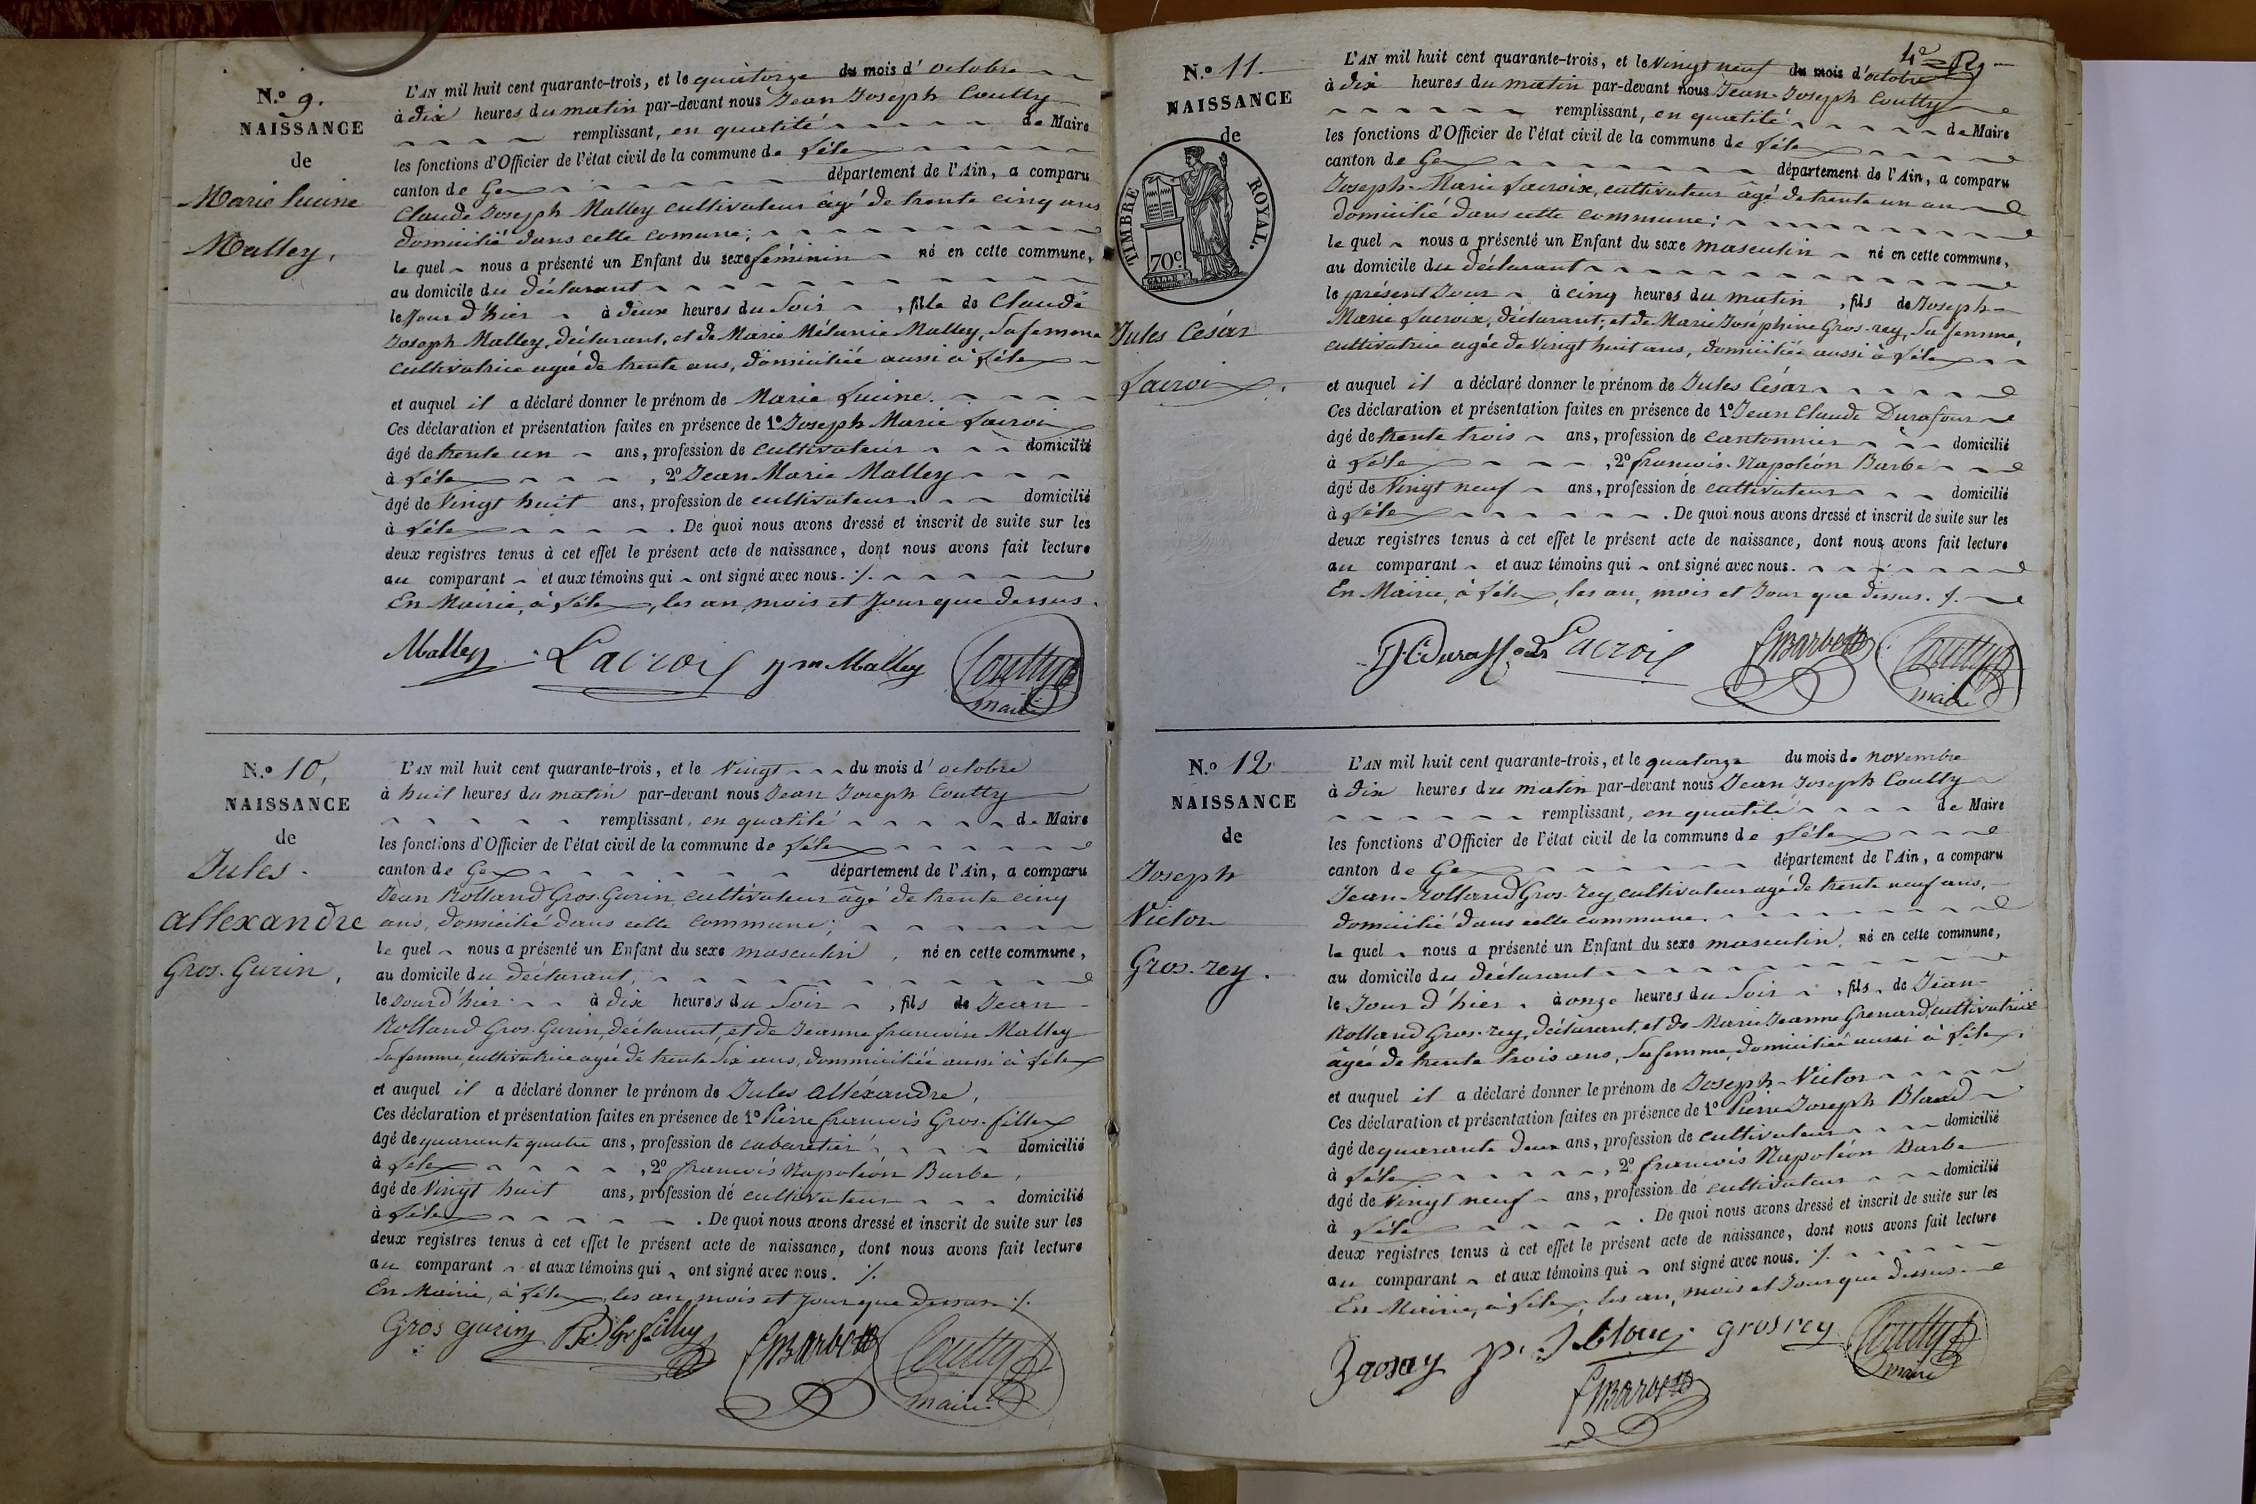 N.º 9.
NAISSANCE
de
Marie Lucine
Malley.
L'AN mil huit cent quarante-trois, et le quatorze du mois d'octobre
à dix heures du matin par-devant nous Jean Joseph Coutty
remplissant, en qualité de Maire
les fonctions d'Officier de l'état civil de la commune de Lélex
canton de Gex département de l'Ain, a comparu
Claude Joseph Malley cultivateur âgé de trente cinq ans
domicilié dans cette comune;
le quel nous a présenté un Enfant du sexe féminin né en cette commune,
au domicile du déclarant
le Jour d'hier à deux heures du Soir, fille de Claude
Joseph Malley, déclarant, et de Marie Mélanie Malley, Sa femme
cultivatrice agée de trente ans, domiciliée aussi à Lélex
et auquel il a déclaré donner le prénom de Marie Lucine.
Ces déclaration et présentation faites en présence de 1º Joseph Marie Lacroix
âgé de trente un ans, profession de cultivateur domicilié
à Lélex, 2º Jean Marie Malley
âgé de Vingt huit ans, profession de cultivateur domicilié
à Lélex. De quoi nous avons dressé et inscrit de suite sur les
deux registres tenus à cet effet le présent acte de naissance, dont nous avons fait lecture
au comparant et aux témoins qui ont signé avec nous. ./.
En Mairie, à Lélex, les an, mois et Jour que dessus.
Malley Lacroix J m Malley Coutty
maire
N.º 10,
NAISSANCE
de
Jules
allexandre
Gros-Gurin,
L'AN mil huit cent quarante-trois, et le Vingt du mois d'octobre
à huit heures du matin par-devant nous Jean Joseph Coutty
remplissant, en qualité de Maire
les fonctions d'Officier de l'état civil de la commune de Lélex
canton de Gex département de l'Ain, a comparu
Jean Rolland Gros-Gurin cultivateur âgé de trente cinq
ans, domicilié dans cette commune;
le quel nous a présenté un Enfant du sexe masculin, né en cette commune,
au domicile du déclarant,
le Jour d'hier à dix heures du Soir, fils de Jean-
Rolland Gros-Gurin, déclarant, et de Jeanne françoise Malley
Sa femme, cultivatrice agée de trente Six ans, dommiciliée aussi à Lélex
et auquel il a déclaré donner le prénom de Jules Alléxandre,
Ces déclaration et présentation faites en présence de 1º Pierre françois Gros-fillex
âgé de quarante quatre ans, profession de cabaretier domicilié
à Lélex, 2º françois Napoléon Barbe,
âgé de Vingt huit ans, profession de cultivateur domicilié
à Lélex. De quoi nous avons dressé et inscrit de suite sur les
deux registres tenus à cet effet le présent acte de naissance, dont nous avons fait lecture
au comparant et aux témoins qui ont signé avec nous. ./.
En Mairie, à Lélex, les an, mois et Jour que dessus ./.
Gros gurin FBarbe Coutty
maire
4e
N.º 11.
NAISSANCE
de
TIMBRE ROYAL.
70c
Jules César
Lacroix.
L'AN mil huit cent quarante-trois, et le Vingt neuf du mois d'octobre
à dix heures du matin par-devant nous Jean-Joseph Coutty
remplissant, en qualité de Maire
les fonctions d'Officier de l'état civil de la commune de Lélex
canton de Gex département de l'Ain, a comparu
Joseph-Marie Lacroix, cultivateur âgé de trente un an
domicilié dans cette commune;
le quel nous a présenté un Enfant du sexe masculin né en cette commune,
au domicile du déclarant
le présent Jour à cinq heures du matin, fils de Joseph-
Marie Lacroix, déclarant, et de Marie Joséphine Gros-rey, Sa femme,
cultivatrice agée de Vingt huit ans, domiciliée aussi à Lélex
et auquel il a déclaré donner le prénom de Jules César
Ces déclaration et présentation faites en présence de 1º Jean Claude Durafour
âgé de trente trois ans, profession de cantonnier domicilié
à Lélex, 2º françois-Napoléon Barbe
âgé de Vingt neuf ans, profession de cultivateur domicilié
à Lélex. De quoi nous avons dressé et inscrit de suite sur les
deux registres tenus à cet effet le présent acte de naissance, dont nous avons fait lecture
au comparant et aux témoins qui ont signé avec nous.
En Mairie, à Lélex, les an, mois et Jour que dessus. ./.
Lacroix FBarbe Coutty
maire
N.º 12
NAISSANCE
de
Joseph
Victor
Gros-rey.
L'AN mil huit cent quarante-trois, et le quatorze du mois de novembre
à dix heures du matin par-devant nous Jean Joseph Coutty
remplissant, en qualité de Maire
les fonctions d'Officier de l'état civil de la commune de Lélex
canton de Gex département de l'Ain, a comparu
Jean-Rolland Gros-rey cultivateur agé de trente neuf ans,
domicilié dans cette commune.
le quel nous a présenté un Enfant du sexe masculin, né en cette commune,
au domicile du déclarant
le Jour d'hier à onze heures du Soir, fils de Jean-
Rolland Gros-rey, déclarant, et de Marie Jeanne Grenard, cultivatrice
âgée de trente trois ans, Sa femme, domiciliée aussi à Lélex,
et auquel il a déclaré donner le prénom de Joseph-Victor
Ces déclaration et présentation faites en présence de 1º Pierre Joseph Blanc
âgé de quarante deux ans, profession de cultivateur domicilié
à Lélex, 2º françois Napoléon Barbe
âgé de Vingt neuf ans, profession de cultivateur domicilié
à Lélex. De quoi nous avons dressé et inscrit de suite sur les
deux registres tenus à cet effet le présent acte de naissance, dont nous avons fait lecture
au comparant et aux témoins qui ont signé avec nous. ./.
En Mairie, à Lélex, les an, mois et Jour que dessus.
grosrey Coutty
maire
FBarbe